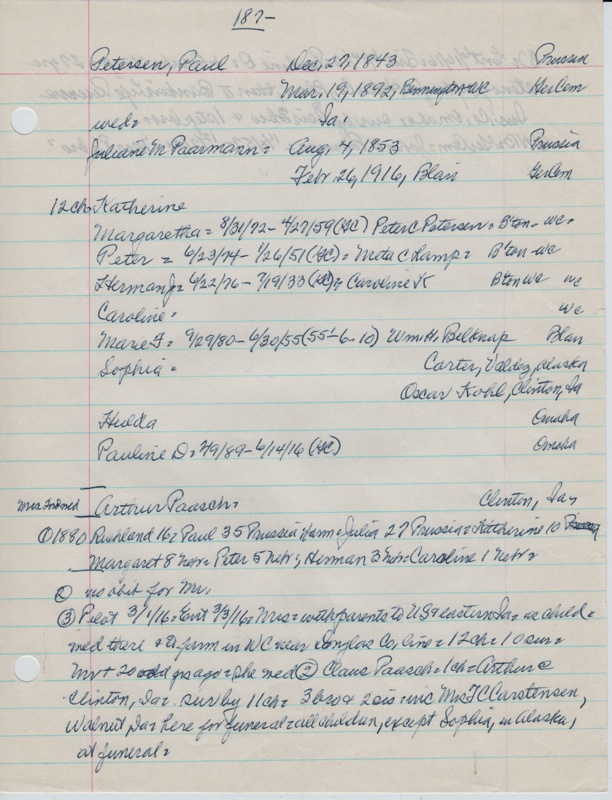 187-
Petersen, Paul Dec, 27, 1843 Prussia
Mar. 19, 1892, Bennington WC HerCem
wed= Ia.
Juliane M Paarmann= Aug, 4, 1853 Prussia
Febr. 26, 1916, Blair HerCem
12 ch. Katherine
Margaretha = 8/31/72 - 4/27/59 (GC) Peter C Petersen, B'ton- WC.
Peter = 6/23/74 - 1/26/51 (GC) = Meta C Lamp= B'ton-WC
Herman J= 6/22/76 - 7/19/33 (GC); Caroline K Bton WC WC
Caroline= WC
Marie F= 9/29/80 - 6/30/55 (55-6-10) Wm H. Belknap Blair
Sophia = Carter, Valdez, Alaska
Oscar Kohl, Clinton, Ia
Hulda Omaha
Pauline D. 2/9/89 - 6/14/16 (GC) Omaha
Arthur Paasch= Clinton, Ia,
① 1880 Richland 16= Paul 35 Prussia Farm= Julia 27 Prussia= Katherine 10
Margaret 8 Nebr= Peter 5 Nebr; Herman 3 Nebr= Caroline 1 Nebr=
② no obit for Mr.
③ Pilot 3/1/16= Ent 3/3/16= Mrs= with parents to US & eastern Ia= as child=
med there & to farm in WC near Douglas Co, line= 12 ch= 10 sur=
Mr + 20 yrs ago= she med ② Claus Paasch= 1 ch= Arthur @
Clinton, Ia= sur by 11 ch= 3 bro & 2 sis= inc Mrs TC Carstensen,
Walnut, Ia= here for funeral= all children, except Sophia, in Alaska,
at funeral=